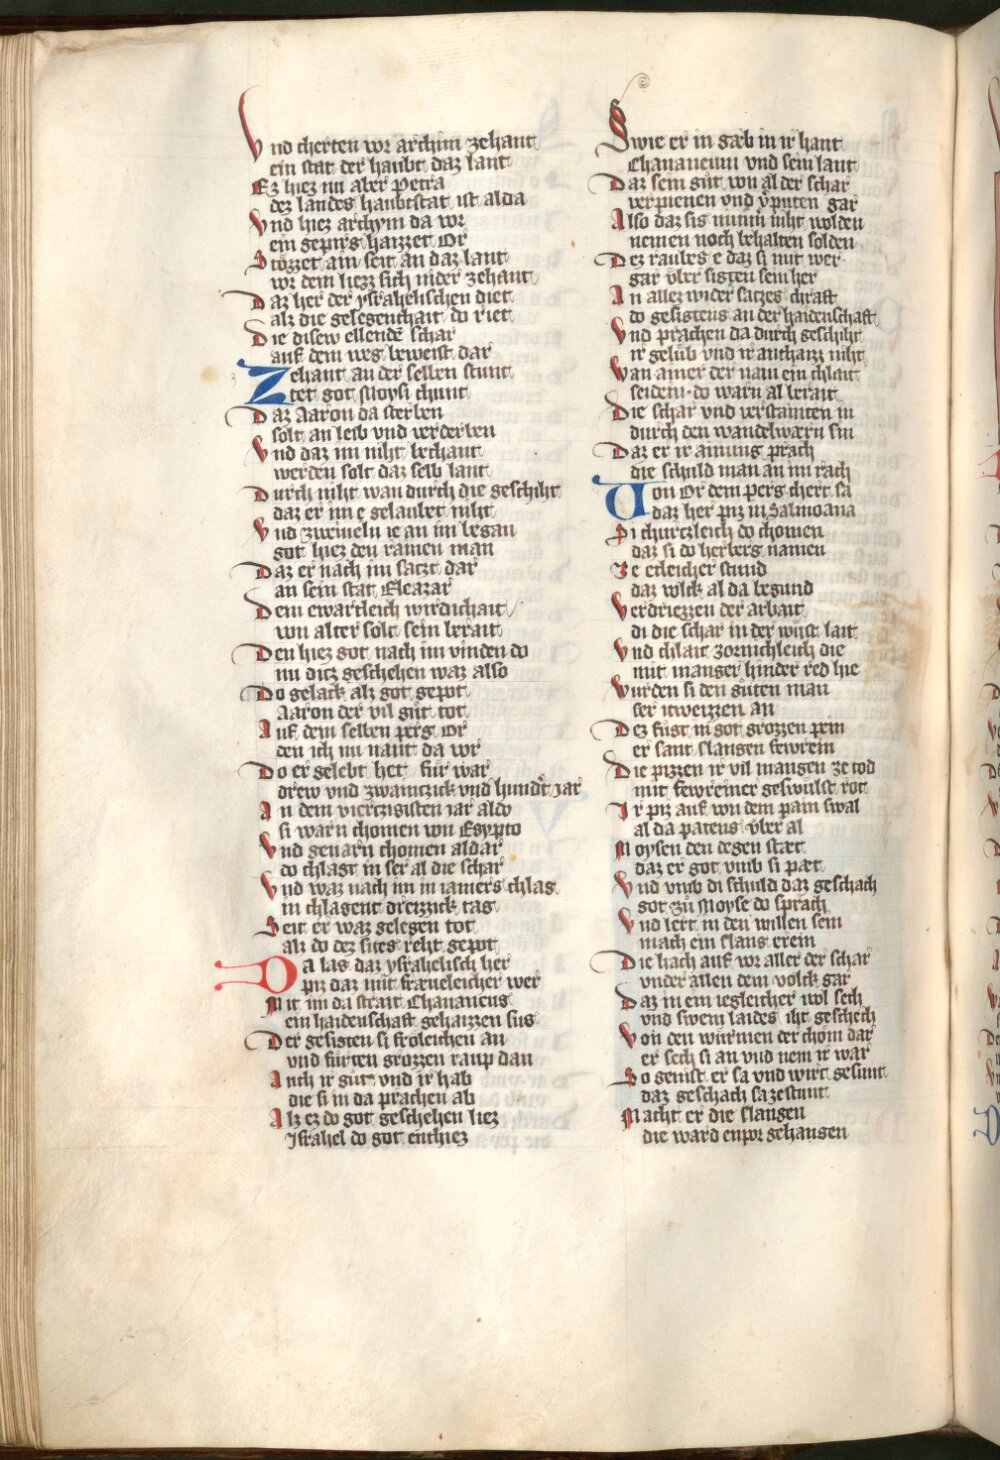 Vnd cherten vor archim zehant
ein stat der haubt daz lant
Ez hiez nu aber Petra
dez landes haubtstat ist alda
Vnd hiez archym da vor
ein gepirg haizzet Or
Stözzet ain seit an daz lant
vor dem liezz sich nider zehant
Daz her der ysrahelischen diet
alz die gelegenhait do riet
Die disew ellende schar
auf dem weg beweist dar
Zehant an der selben stunt
tet got Moysi chunt
Daz Aaron da sterben
solt an leib vnd verderben
Vnd daz im niht bechant
werden solt daz selb lant
Durch niht wan durch die geschiht
daz er im e gelaubet niht
Vnd zweiueln ie an im began
got hiez den ramen man
Daz er nach im satzt dar
an sein stat Eleazar
Dem ewartleich wirdichait
von alter solt sein berait
Den hiez got nach im vinden do
nu ditz geschehen waz also
Do gelack alz got gepot
Aaron der vil güt tot
Auf dem selben perg Or
den ich nu nant da vor
Do er gelebt het für war
drew vnd zwaintzick vnd hundert iar
An dem vierczigisten iar aldo
si warn chomen von Egypto
Vnd geuarn chomen aldar
do chlagt in ser al die schar
Vnd waz nach im in iamers chlag
in chlagent dreizzick tag
Seit er waz gelegen tot
alz do dez sites reht gepot
Da lag daz ysrahelisch her
piz daz mit fræueleicher wer
Mit im da strait Chananeus
ein haidenschaft gehaizzen sus
Der gesigten si fröleichen an
vnd fürten grozzen raup dan
Auch ir güt vnd ir hab
die si in da prachen ab
Alz ez do got geschehen liez
Israhel do got enthiez
Swie er in gæb in ir hant
Chananeum vnd sein lant
Daz sein güt von al der schar
verpienen vnd vͦputen gar
Also daz sis nimm niht wolden
nemen noch behalten solden
Dez raubes e daz si mit wer
gar vber sigten sein her
An allez wider satzes chraft
do gesigtens an der haidenschaft
Vnd prachen da durch geschiht
ir gelüb vnd ir anthaizz niht
Wan ainer der nam ein chlait
seidein do warn al berait
Die schar vnd verstainten in
durch den wandelwærn sin
Daz er ir ainung prach
die schuld man an im rach
Von Or dem perg chert sa
daz her piz in Salmoana
Pi churtzleich do chomen
daz si do herberg namen
Je etleicher stund
daz volck al da begund
Verdriezzen der arbait
di die schar in der wüst lait
Vnd chlait zornichleich die
mit manger hinder red hie
Wurden si den güten man
ser itweizzen an
Dez fügt in got grozzen pein
er sant slangen fewrein
Die pizzen ir vil mangen ze tod
mit fewreiner geswulst rot
Ir piz auf von dem pain swal
al da patens vber al
Moysen den degen stæt
daz er got vmb si pæt
Vnd vmb di schuld daz geschach
got zü Moyse do sprach
Vnd lert in den willen sein
mach ein slang erein
Die hach auf vor aller der schar
vnder allen dem volck gar
Daz in ein iegleicher wol sech
vnd swem laides iht geschech
Von den würmen der chom dar
er sech si an vnd nem ir war
So genist er sa vnd wirt gesunt
daz geschach sa zestunt
Macht er die slangen
die ward enpor gehangen